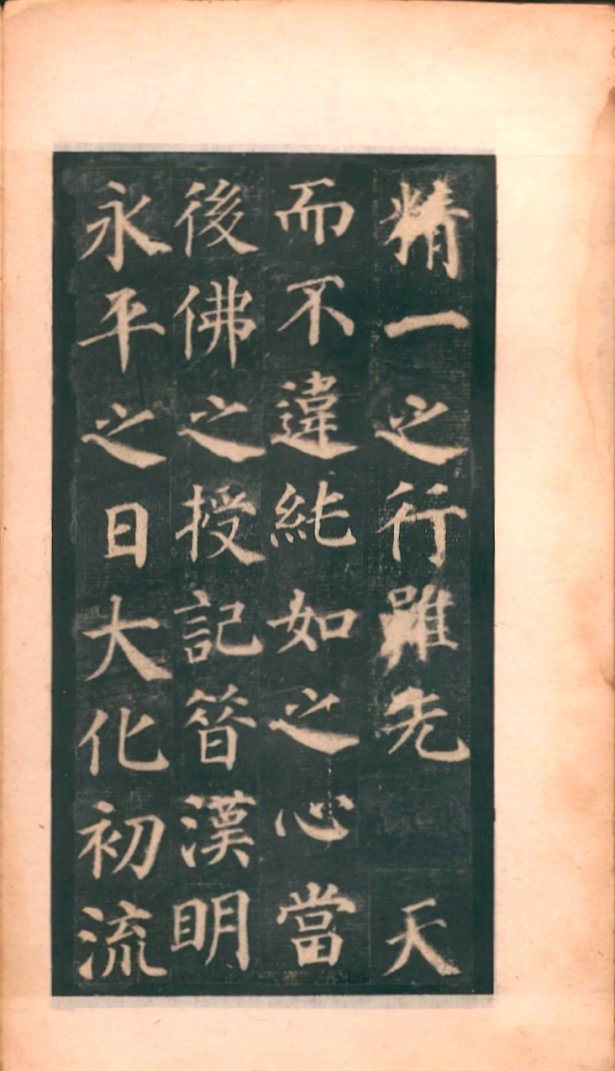 精一之行雖先 天
而不違純如之心當
後佛之授記昔漢明
永平之日大化初流